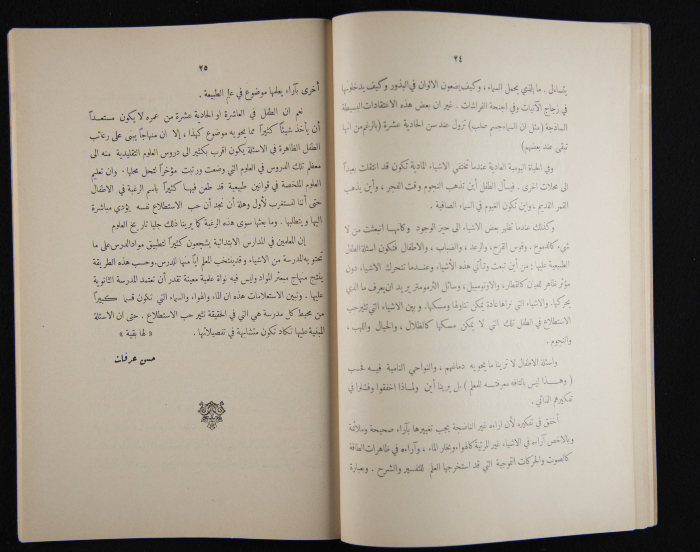 ٢٤
يتساءل . ما الذي يحمل السماء ، وكيف يضعون الالوان في البذور وكيف يدخلونها
في زجاج الآنيات وفي اجنحة الفراشات . غير ان بعض هذه الاعتقادات البسيطة
الساذجة ( مثل ان السماء جسم صلب ) تزول عند سن الحادية عشرة ( بالرغم من انها
تبقى عند بعضهم )
وفي الحياة اليومية العادية عندما تختفي الاشياء المادية تكون قد انتقلت بعيداً
الى محلات اخرى . فيسأل الطفل أين تذهب النجوم وقت الفجر ، وأين يذهب
القمر القديم ، واين تكون الغيوم في السماء الصافية .
وكذلك عندما تظهر بعض الاشياء الى حيز الوجود وكأنها انبعثت من لا
شيء كالدموع ، وقوس القزح ، والرعد ، والضباب ، والاطفال فتكون اسئلة الطفل
الطبيعية عليها : من أين تبعث وتأتي هذه الأشياء وعندما تتحرك الاشياء دون
مؤثر ظاهر للعيان كالقطار ، والاوتومبيل ، وسائل الترمومتر يريد ان يعرف ما الذي
يحركها . والاشياء التي نراها عادة يمكن تناولها ومسكها . وبين الاشياء التي تثير حب
الاستطلاع في الطفل تلك التي لا يمكن مسكها كالظلال ، والخيال واللهب ،
والنجوم .
واسئلة الاطفال لا ترينا ما يحويه دماغهم ، والنواحي النامية فيه فحسب
( وهذا ليس بالتافه معرفته للمعلم ) بل يرينا أين ولماذا اخفقوا وفشلوا في
تفكيرهم الذاتي .
أخفق في تفكيره لأن اراءه غير الناضجة يجب تغييرها بآراء صحيحة وملائمة
وبالاخص آراءه في الاشياء غير المرئية كالهواء وبخار الماء ، وآراءه في ظاهرات الطاقة
كالصوت والحركات التموجية التي قد استخرجها العلم للتفسير والشرح . وبعبارة
٢٥
أخرى بآراء يعلمها موضوع في علم الطبيعة .
نعم ان الطفل في العاشرة او الحادية عشرة من عمره لا يكون مستعداً
أن يأخذ شيئاً كثيراً مما يحويه موضوع كهذا ، إلا ان منهاجاً يبنى على رغائب
الطفل الظاهرة في الاسئلة يكون اقرب بكثير الى دروس العلوم التقليدية منه الى
معظم تلك الدروس في العلوم التي وضعت ورتبت مؤخراً لتحل محلها . وان تعليم
العلوم الملخصة في قوانين طبيعية قد طعن فيها كثيراً باسم الرغبة في الاطفال
حتى أننا نستغرب لأول وهلة أن نجد أن حب الاستطلاع نفسه يؤدي مباشرة
اليها ويتطلبها . وما بعثها سوى هذه الرغبة كما يرينا ذلك جلياً تاريخ العلوم
إن المعلمين في المدارس الابتدائية يشجعون كثيراً لتطبيق مواد الدرس على ما
تحتويه المدرسة من الاشياء وقد ينتخب المعلم اياً منها للدرس . وحسب هذه الطريقة
ينتج منهاج مبعثر المواد وليس فيه نواة علمية معينة تقدر أن تعتمد المدرسة الثانوية
عليها . وتبين الاستعلامات هذه ان الماء والهواء والسماء التي تكون قسماً كبيراً
من محيط كل مدرسة هي التي في الحقيقة تثير حب الاستطلاع . حتى ان الاسئلة
المبنية عليها تكاد تكون متشابهة في تفصيلاتها .
« لها بقية »
حسن عرفات